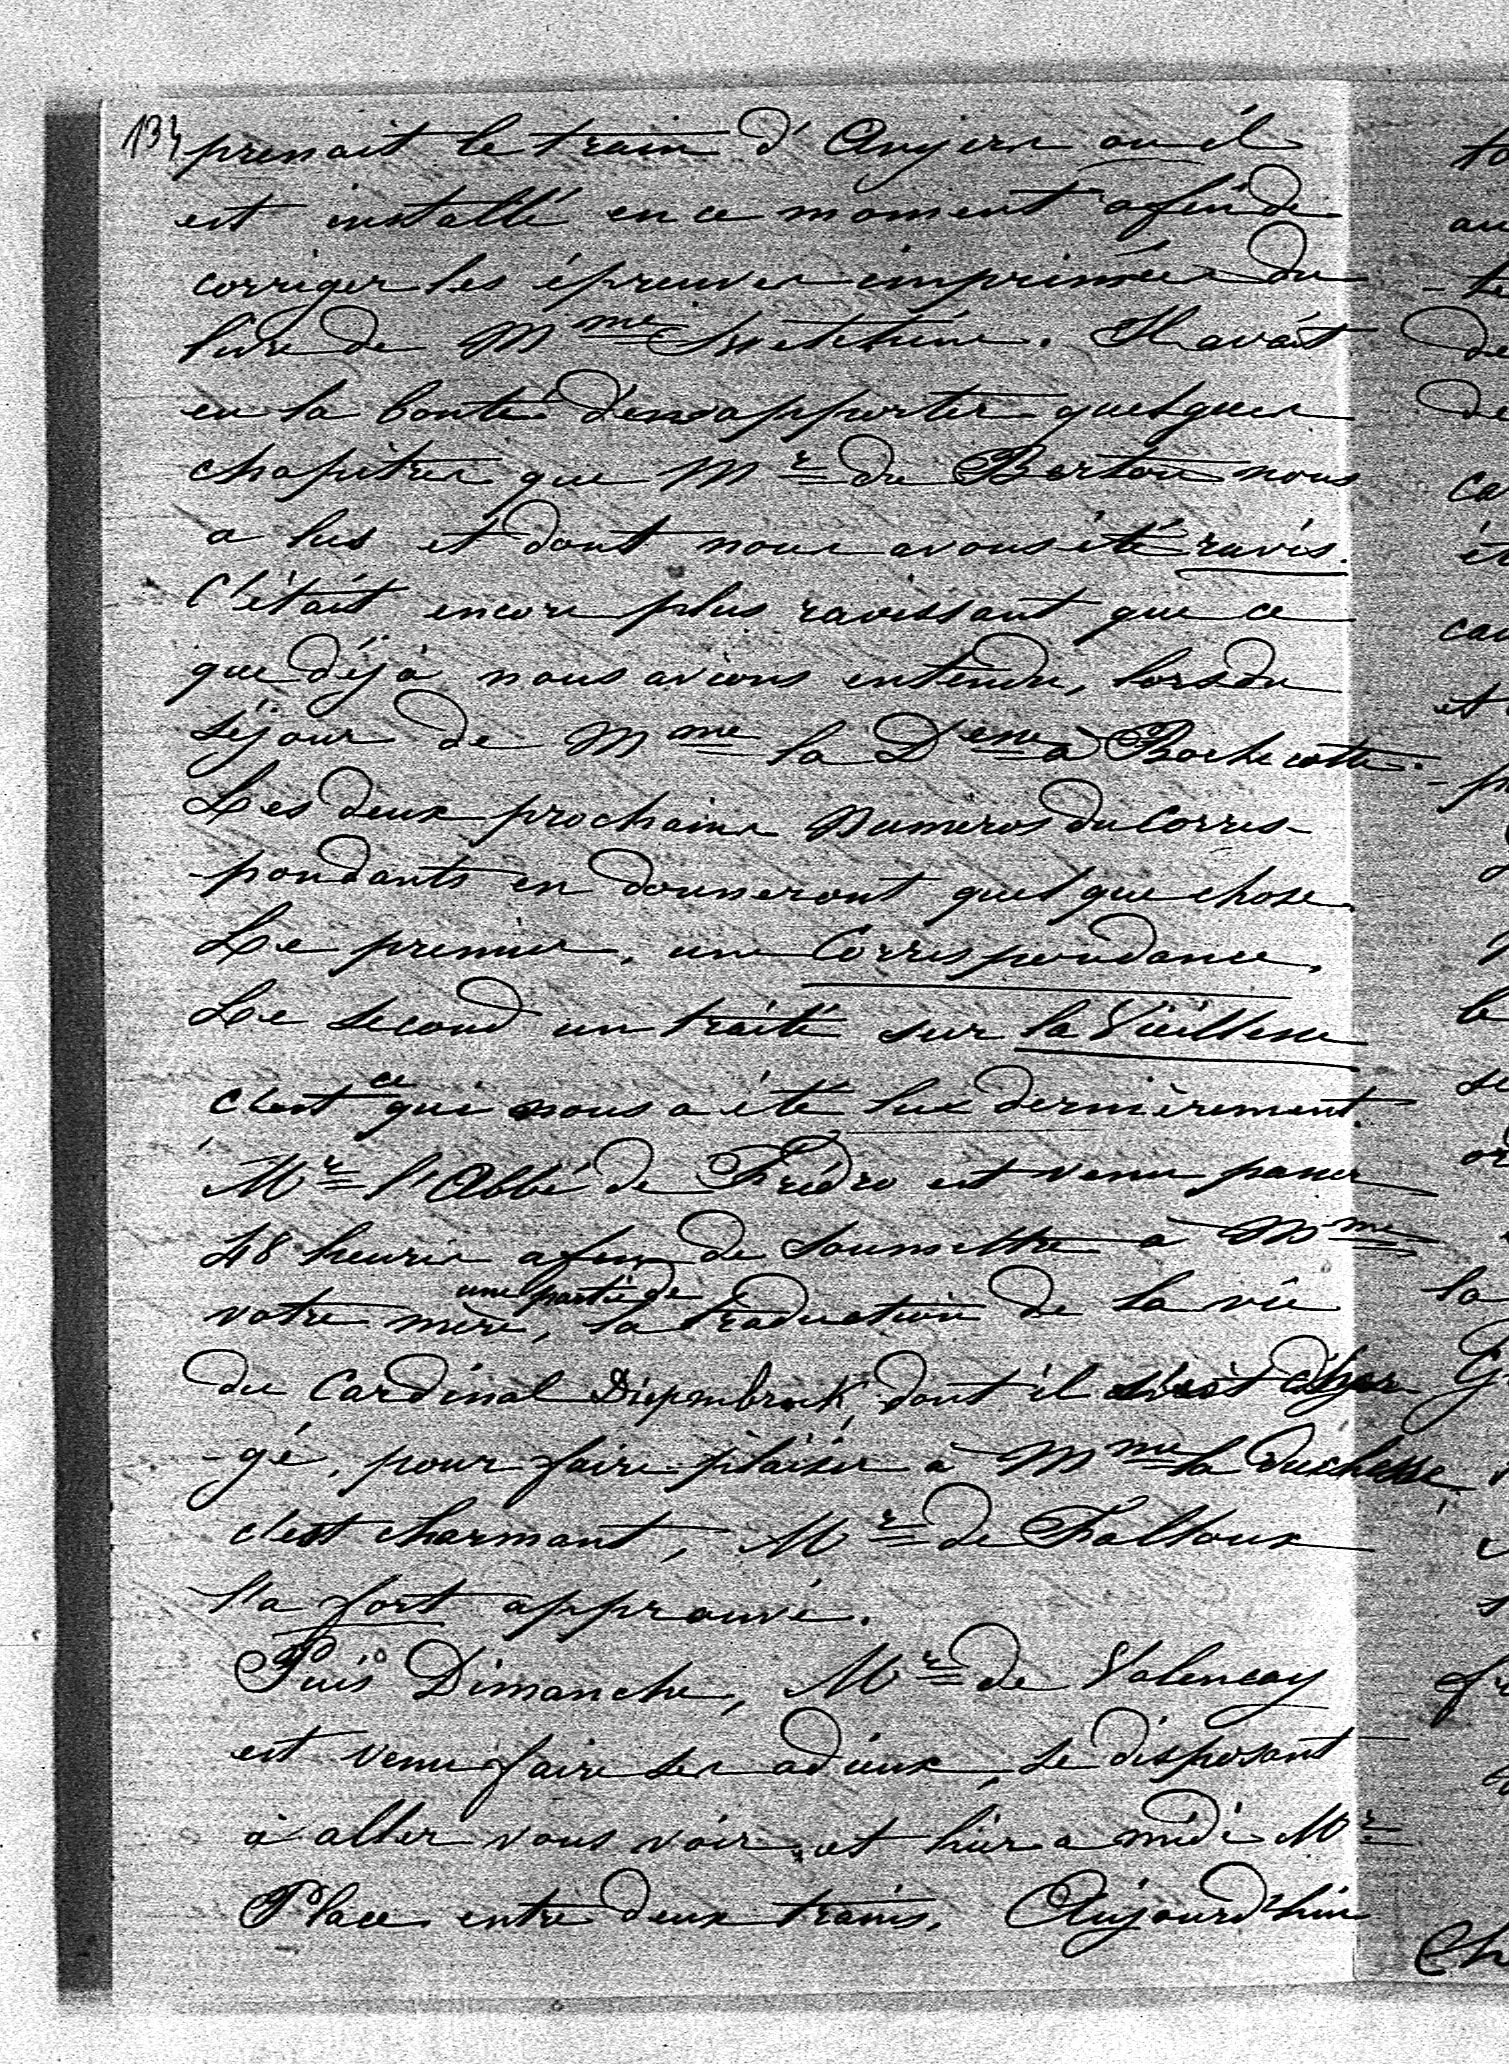 134
prenait le train d'Angers où il
est installé en ce moment afin de
corriger les épreuves imprimées du
livre de Mme Swetchine. Il avait
eu la bonté d'en apporter quelques
chapitres que Mr de Bertou nous
a lus et dont nous avons été ravis.
C'était encore plus ravissant que ce
que déjà nous avions entendu, lors du
séjour de Mme la Desse à Rochecotte.
Les deux prochains Numéros du Corres-
-pondants en donneront quelque chose.
Le premier, une Correspondance,
Le second un traité sur la Vieillesse
c'est ce qui nous a été lue dernièrement.
Mr l'Abbé de Frédro est venu passer
48 heures afin de soumettre à Mme
votre mère, une partie de la traduction de la vie
du Cardinal Diepenbrock, dont il s'est char-
-gé, pour faire plaisir à Mme la Duchesse,
c'est charmant, Mr de Falloux
l'a fort approuvé.
Puis Dimanche, Mr de Valencay
est venu faire ses adieux, se disposant
à aller vous voir, et hier a midi Mr
Place entre deux trains. Aujourd'hui